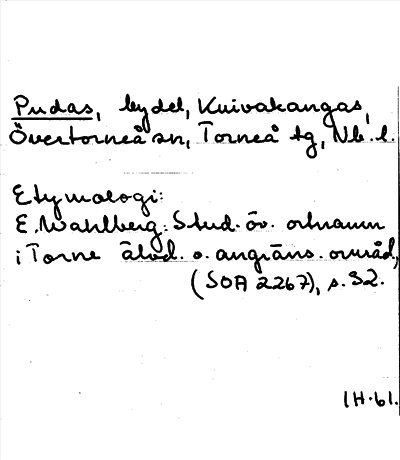 Pudas, bydel, Kuivakangas,
Övertorneå sn, Torneå tg, Nb. l.
Etymologi:
E. Wahlberg: Stud. öv. ortnamn
i Torne älvd. o. angräns. område,
(SOA 2267), s. 32.
IH. 61.